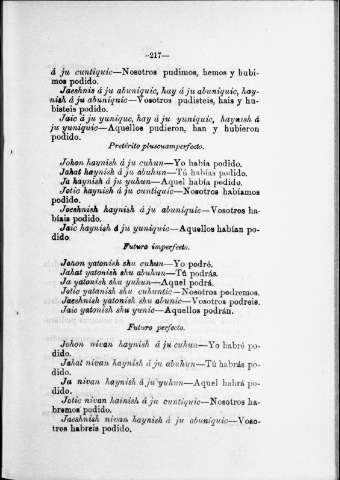 —217—
á ju cuntiquic—Nosotros pudimos, hemos y hubi-
mos podido.
Jaeshnis á ju abuniquic, hay á ju abuniquic, hay-
nish á ju abuniquic—Vosotros pudisteis, hais y hu-
bisteis podido.
Jaic á ju yunique, hay á ju yuniquic, haynish á
ju yuniquic—Aquellos pudieron, han y hubieron
podido.
Pretérito pluscuamperfecto.
Johon haynish á ju cuhun—Yo había podido.
Jahat haynish á ju abuhun—Tú habías podido.
Ja haynish á ju yuhun—Aquel había podido.
Jotic haynish á ju cuntiquic—Nosotros habíamos
podido.
Joeshnish haynish á ju abuniquic—Vosotros ha-
bíais podido.
Jaic haynish á ju yuniquic—Aquellos habían po-
dido.
Futuro imperfecto.
Johon yatonish shu cuhun—Yo podré.
Jahat yatonish shu abuhun—Tú podrás.
Ja yatonish shu yuhun—Aquel podrá.
Jotic yatanish shu cuhuntic—Nosotros podremos.
Jaeshnish yatonish shu abunic—Vosotros podreis.
Jaic yatonish shu yunic—Aquellos podrán.
Futuro perfecto.
Johon nivan haynish á ju cuhun—Yo habré po-
dido.
Jahat nivan haynish á ju abuhun—Tú habrás po-
dido.
Ja nivan haynish á ju yuhun—Aquel habrá po-
dido.
Jotic nivan hainish á ju cuntiquic—Nosotros ha-
bremos podido.
Jaeshnish nivan haynish á ju abuniquic—Voso-
tros habreis podido.